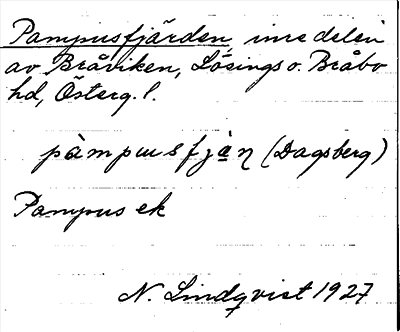 Pampusfjärden, inre delen
av Bråviken, Lösings o. Bråbo
hd, Österg. l.
pàmpusfjàṇ (Dagsberg)
Pampus ek
N. Lindqvist 1927